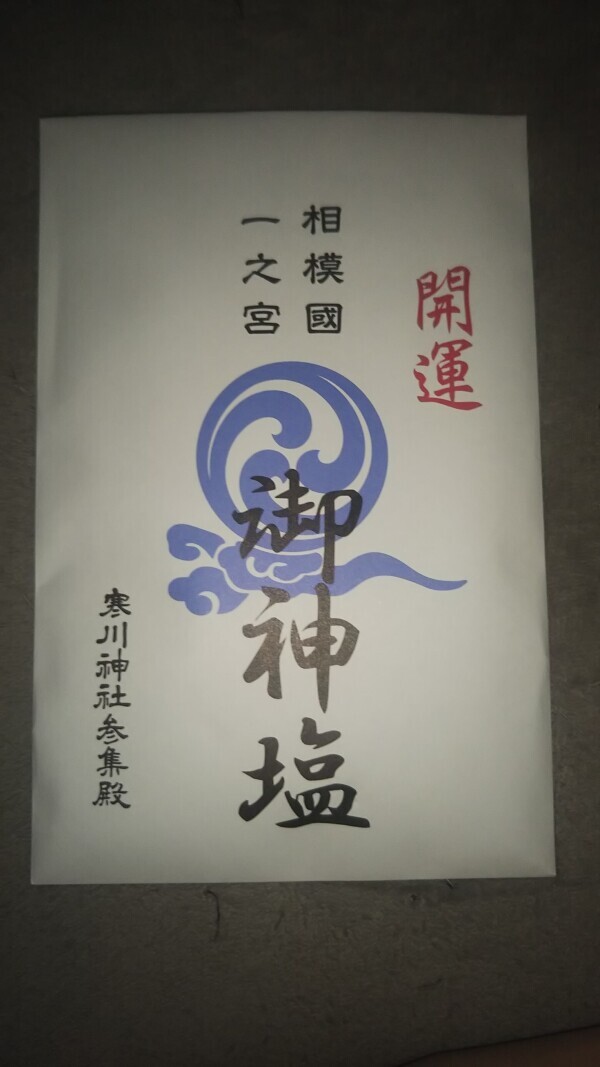 開運
相模國
一之宮
御神塩
寒川神社参集殿